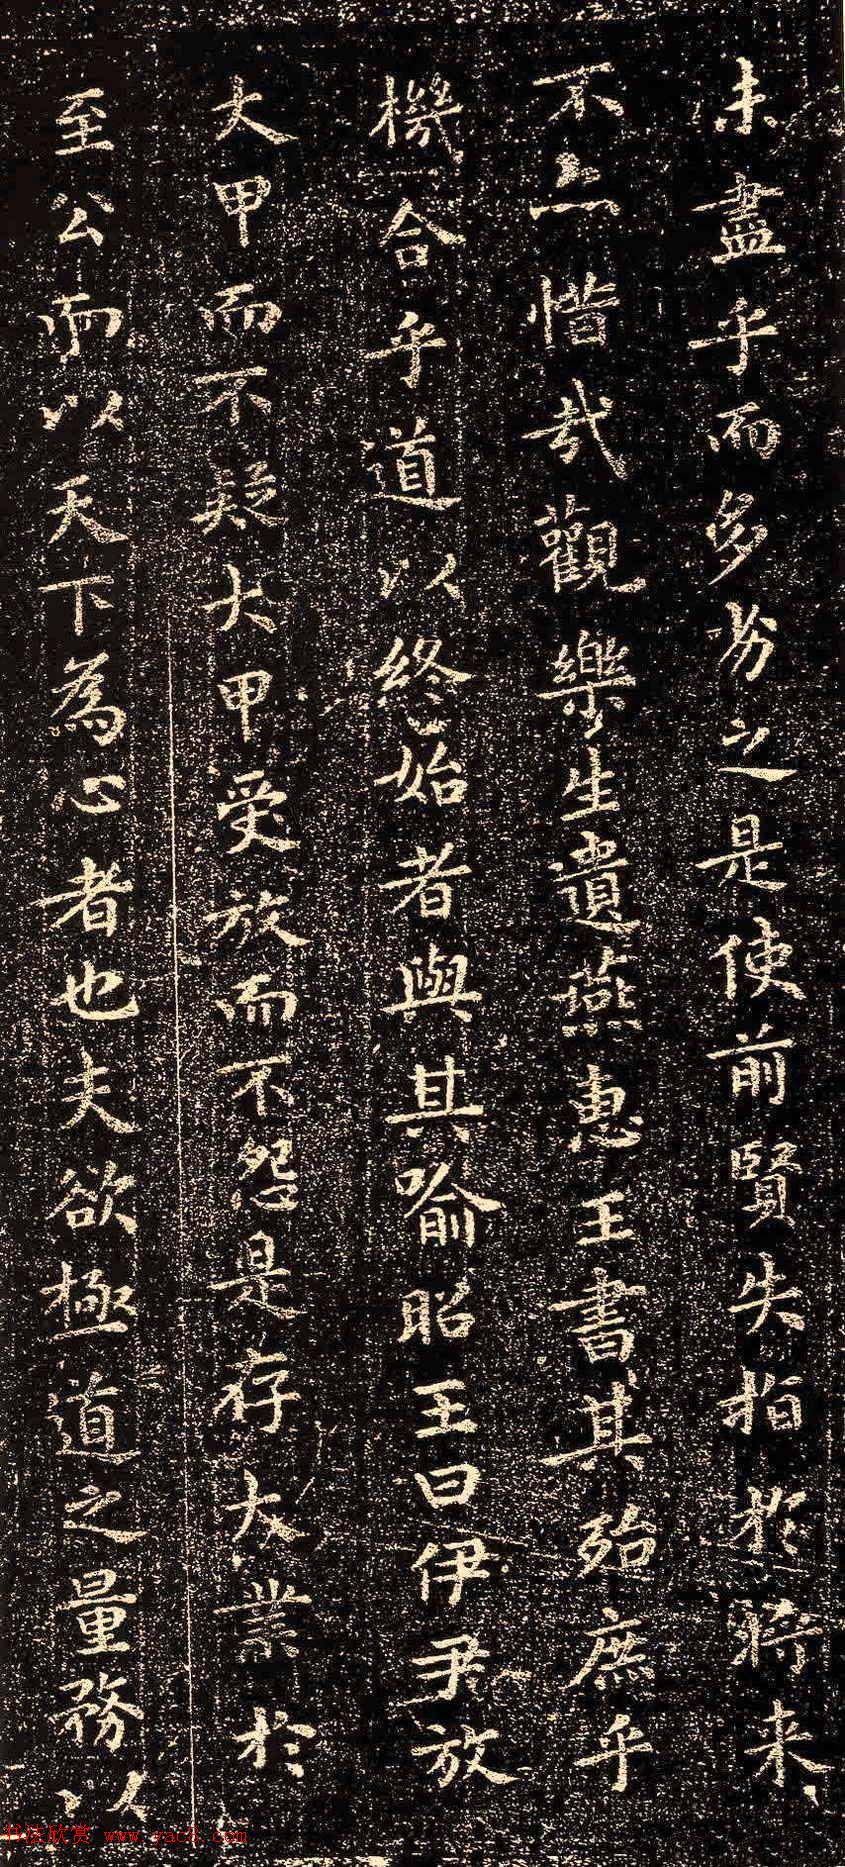 未盡乎而多劣之是使前賢失指於將来
不亦惜哉觀樂生遺燕惠王書其殆庶乎
機合乎道以終始者與其喻昭王曰伊尹放
大甲而不疑大甲受放而不怨是存大業於
至公而以天下為心者也夫欲極道之量務以
书法欣赏 www.yac8.com